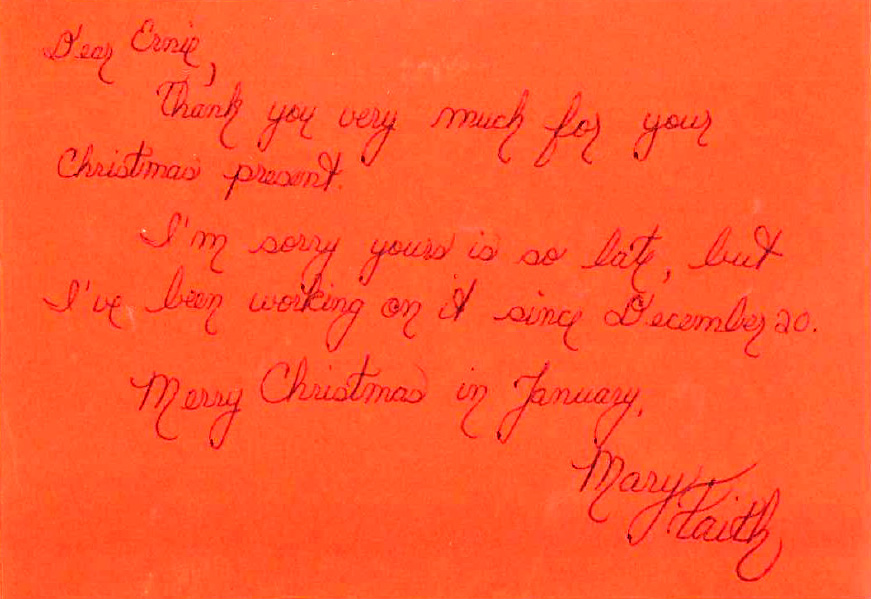 Dear Ernie,
Thank you very much for your
Christmas present.
I'm sorry yours is so late, but
I've been working on it since December 20.
Merry Christmas in January.
Mary
Faith